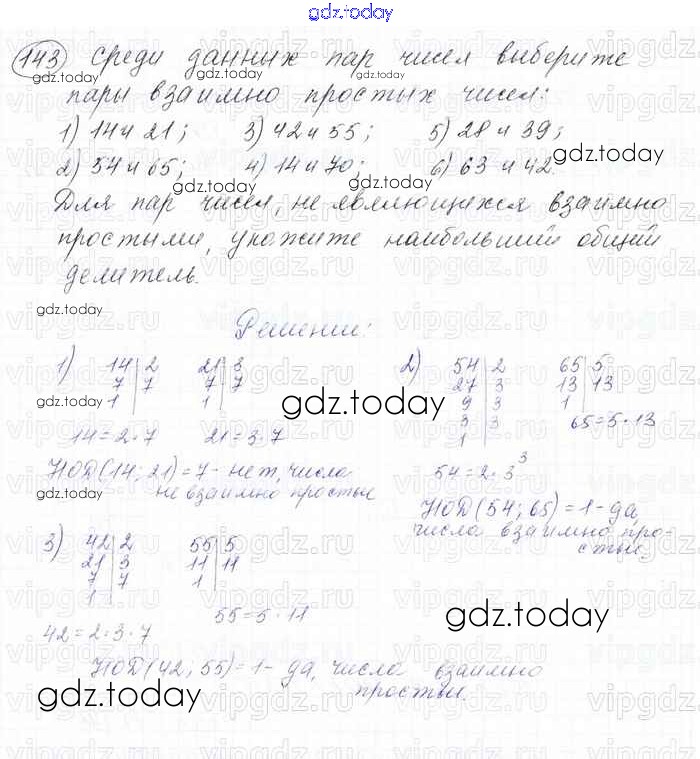 gdz.today
143 Среди данных пар чисел выберите
пары взаимно простых чисел:
1) 14 и 21; 3) 42 и 55; 5) 28 и 39;
2) 54 и 65; 4) 14 и 70; 6) 63 и 42.
Для пар чисел, не являющихся взаимно
простыми, укажите наибольший общий
делитель.
Решение:
1) 14 | 2 21 | 3 2) 54 | 2 65 | 5
7 | 7 7 | 7 27 | 3 13 | 13
1 | 1 | 9 | 3 1 |
3 | 3 65 = 5 · 13
1 |
14 = 2 · 7 21 = 3 · 7
54 = 2 · 3³
НОД(14; 21) = 7 - нет, числа
не взаимно простые
НОД(54; 65) = 1 - да,
числа взаимно про-
стые.
3) 42 | 2 55 | 5
21 | 3 11 | 11
7 | 7 1 |
1 |
55 = 5 · 11
42 = 2 · 3 · 7
НОД(42; 55) = 1 - да, числа взаимно
простые.
gdz.today
gdz.today
gdz.today
gdz.today
gdz.today
gdz.today
gdz.today
gdz.today
gdz.today
gdz.today
vipgdz.ru